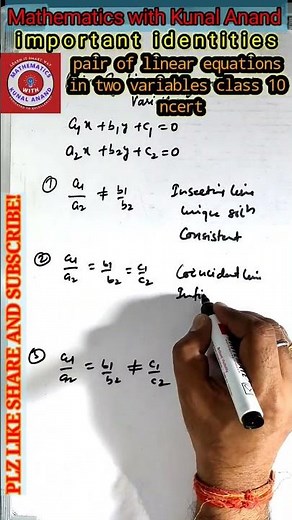 Mathematics with Kunal Anand
important identities
pair of linear equations
in two variables class 10
ncert
MATHEMATICS
WITH
KUNAL ANAND
a₁x + b₁y + c₁ = 0
a₂x + b₂y + c₂ = 0
① a₁/a₂ ≠ b₁/b₂ Insecting line
unique solⁿ
Consistent
② a₁/a₂ = b₁/b₂ = c₁/c₂ Coincident line
Infi
③ a₁/a₂ = b₁/b₂ ≠ c₁/c₂
PLZ LIKE SHARE AND SUBSCRIBE!